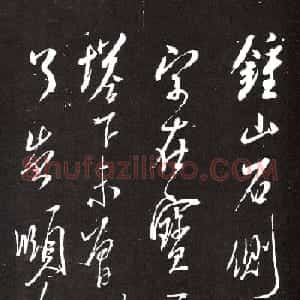 鍾山石側
字在寶
塔下不曾
了
Shufaziliao.com